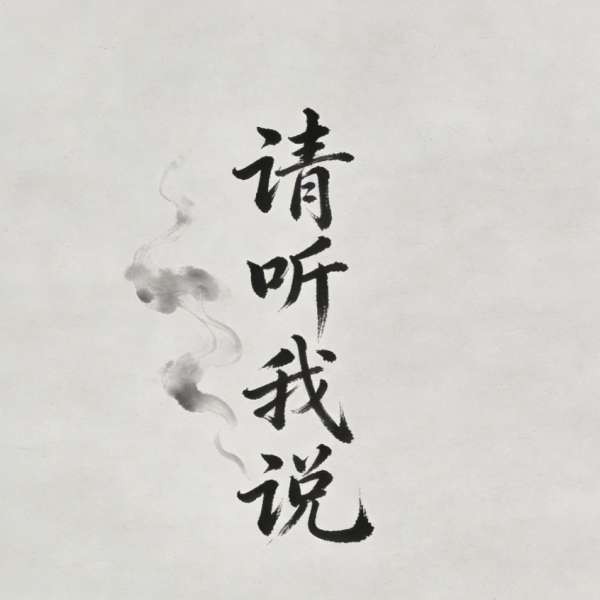 请听我说